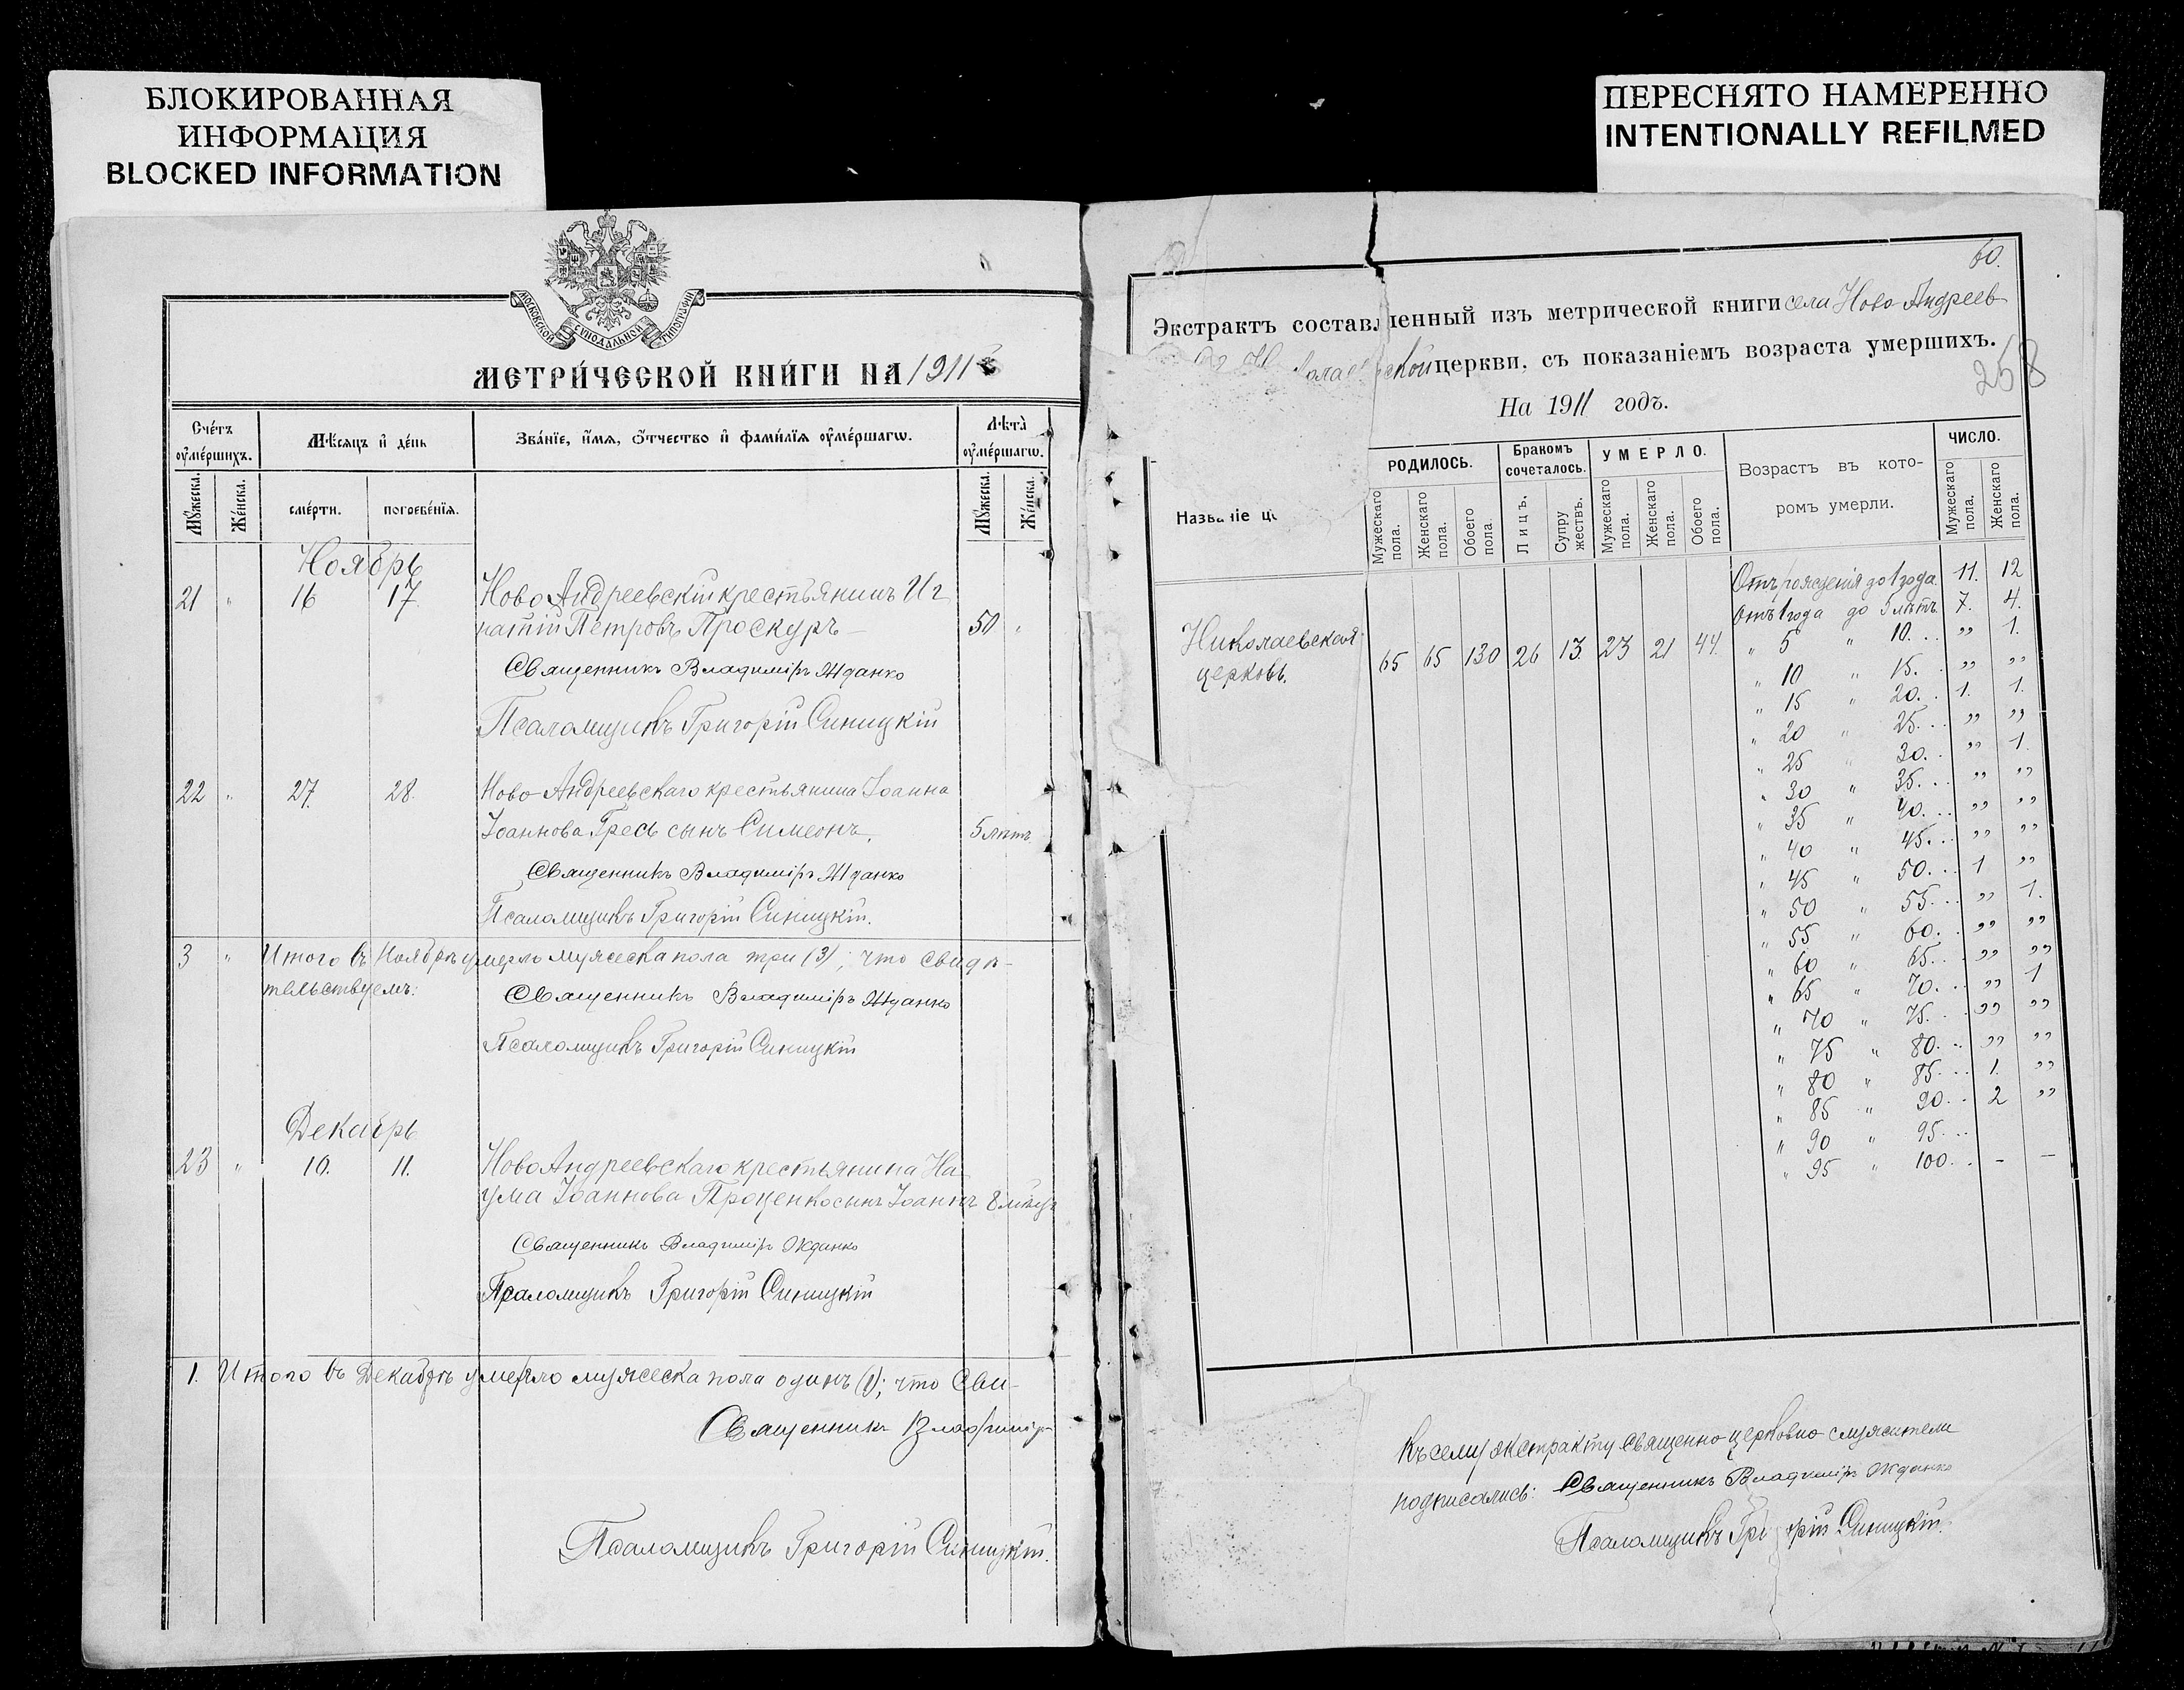 БЛОКИРОВАННАЯ
ИНФОРМАЦИЯ
BLOCKED INFORMATION
ПЕРЕСНЯТО НАМЕРЕННО
INTENTIONALLY REFILMED
МОСКОВСКОЙ СѴНОДАЛЬНОЙ ТИПОГРАФІИ
МЕТРИ́ЧЕСКОЙ КНИ́ГИ НА 1911
Сче́тъ оу҆ме́ршихъ.
Мѣ́сяцъ и҆ де́нь
Зва́нїе, и҆́мѧ, ѻ҆́тчество и҆ фами́лїѧ оу҆ме́ршагѡ.
Лѣ́та̀ оу҆ме́ршагѡ.
Мꙋ́жеска. Же́нска. сме́рти. погребе́нїѧ. Мꙋ́жеска. Же́нска.
Ноябрь
21 " 16 17 Ново Андреевскій крестьянинъ Иг
натій Петровъ Проскуръ 50 "
Священникъ Владиміръ Жданко
Псаломщикъ Григорій Синицкій
22 " 27. 28. Ново-Андреевскаго крестьянина Іоанна
Іоаннова Гресь сынъ Симеонъ. 5 лѣтъ
Священникъ Владиміръ Жданко
Псаломщикъ Григорій Синицкій.
3 " Итого въ Ноябрѣ умерло мужеска пола три (3); что свидѣ-
тельствуемъ: Священникъ Владиміръ Жданко
Псаломщикъ Григорій Синицкій
Декабрь
23 " 10. 11. Ново Андреевскаго крестьянина На-
ума Іоаннова Проценко сынъ Іоаннъ 8
Священникъ Владиміръ Жданко
Псаломщикъ Григорій Синицкій
1. Итого въ Декабрѣ умерло мужеска пола одинъ (1); что сви-
Священникъ Владиміръ
Псаломщикъ Григорій Синицкій.
60.
Экстрактъ составленный изъ метрической книги села Ново-Андреев
церкви, съ показаніемъ возраста умершихъ.
258
На 1911 годъ.
Названіе це
РОДИЛОСЬ. Бракомъ сочеталось. УМЕРЛО. Возрастъ въ кото-ромъ умерли. ЧИСЛО.
Мужескаго пола. Женскаго пола. Обоего пола. Лицъ. Супру жествъ. Мужескаго пола. Женскаго пола. Обоего пола. Мужескаго пола. Женскаго пола.
Николаевская
церковь. 65 65 130 26 13. 23 21 44.
Отъ рожденія до 1 года 11. 12
Отъ 1 года до 5 лѣтъ 7. 4.
" 5 " 10... " 1.
" 10 " 15. . " "
" 15 " 20. . 1. 1.
" 20 " 25... " "
" 25 " 30. . " 1.
" 30 " 35... " "
" 35 " 40... " "
" 40 " 45... " "
" 45 " 50... 1 "
" 50 " 55... " 1.
" 55 " 60. . " "
" 60 " 65... " "
" 65 " 70... " 1
" 70 " 75... " "
" 75 " 80... " "
" 80 " 85... 1. "
" 85 " 90... 2 "
" 90 " 95...
" 95 " 100. . - -
Къ сему экстракту священно церковно служители
подписались: Священникъ Владиміръ Жданко
Псаломщикъ Григорій Синицкій.